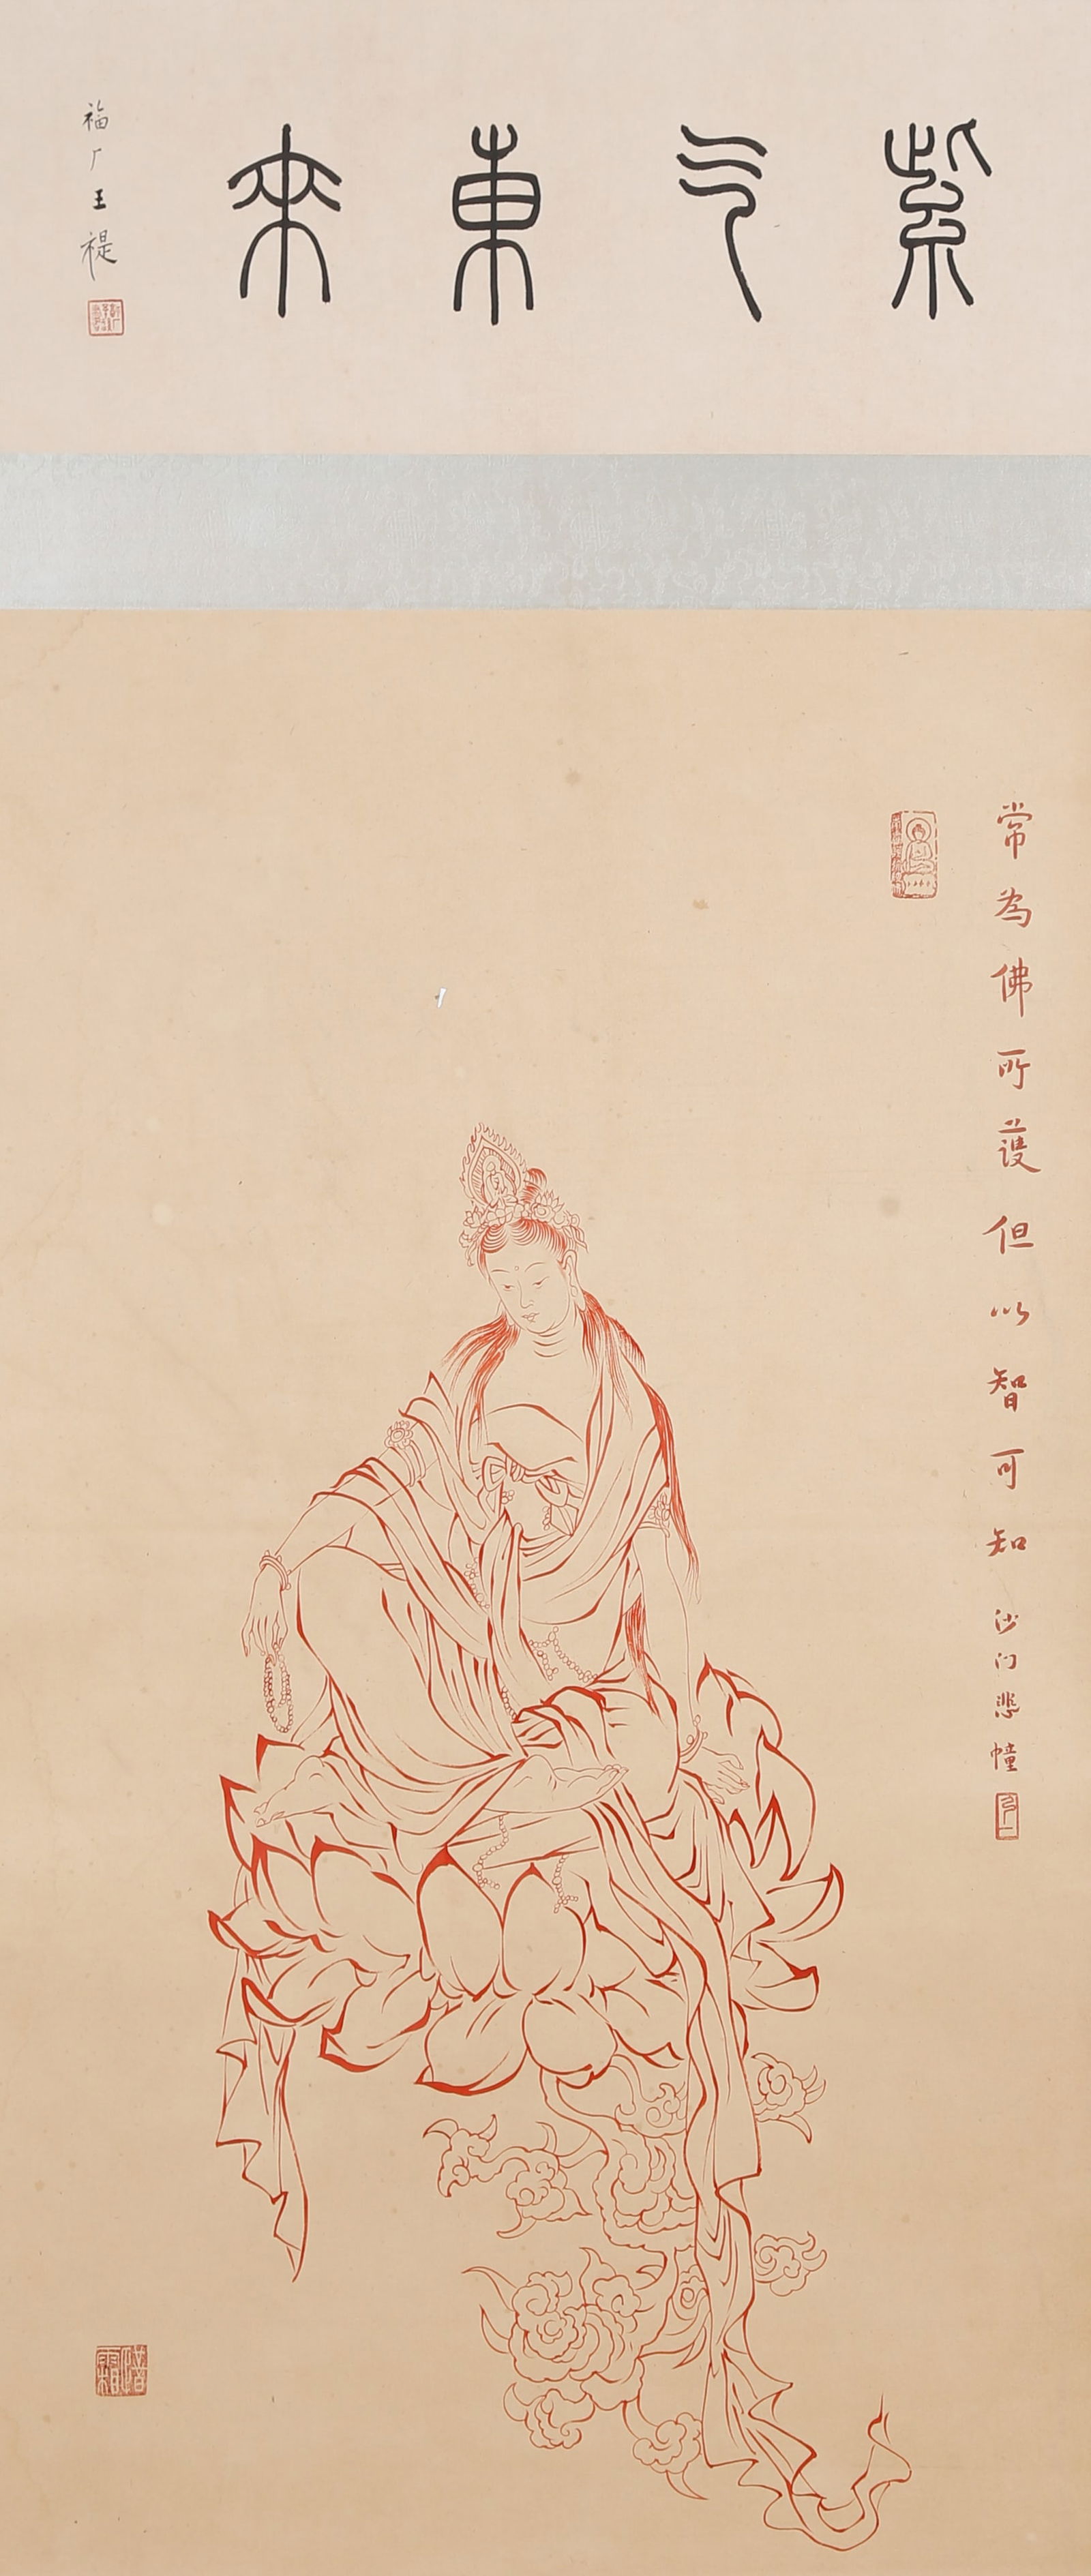 紫气東来
福厂王禔
常為佛所護但以智可知
沙门悲幢